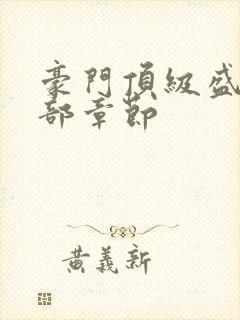 豪門頂級盛
部章節
黃義新